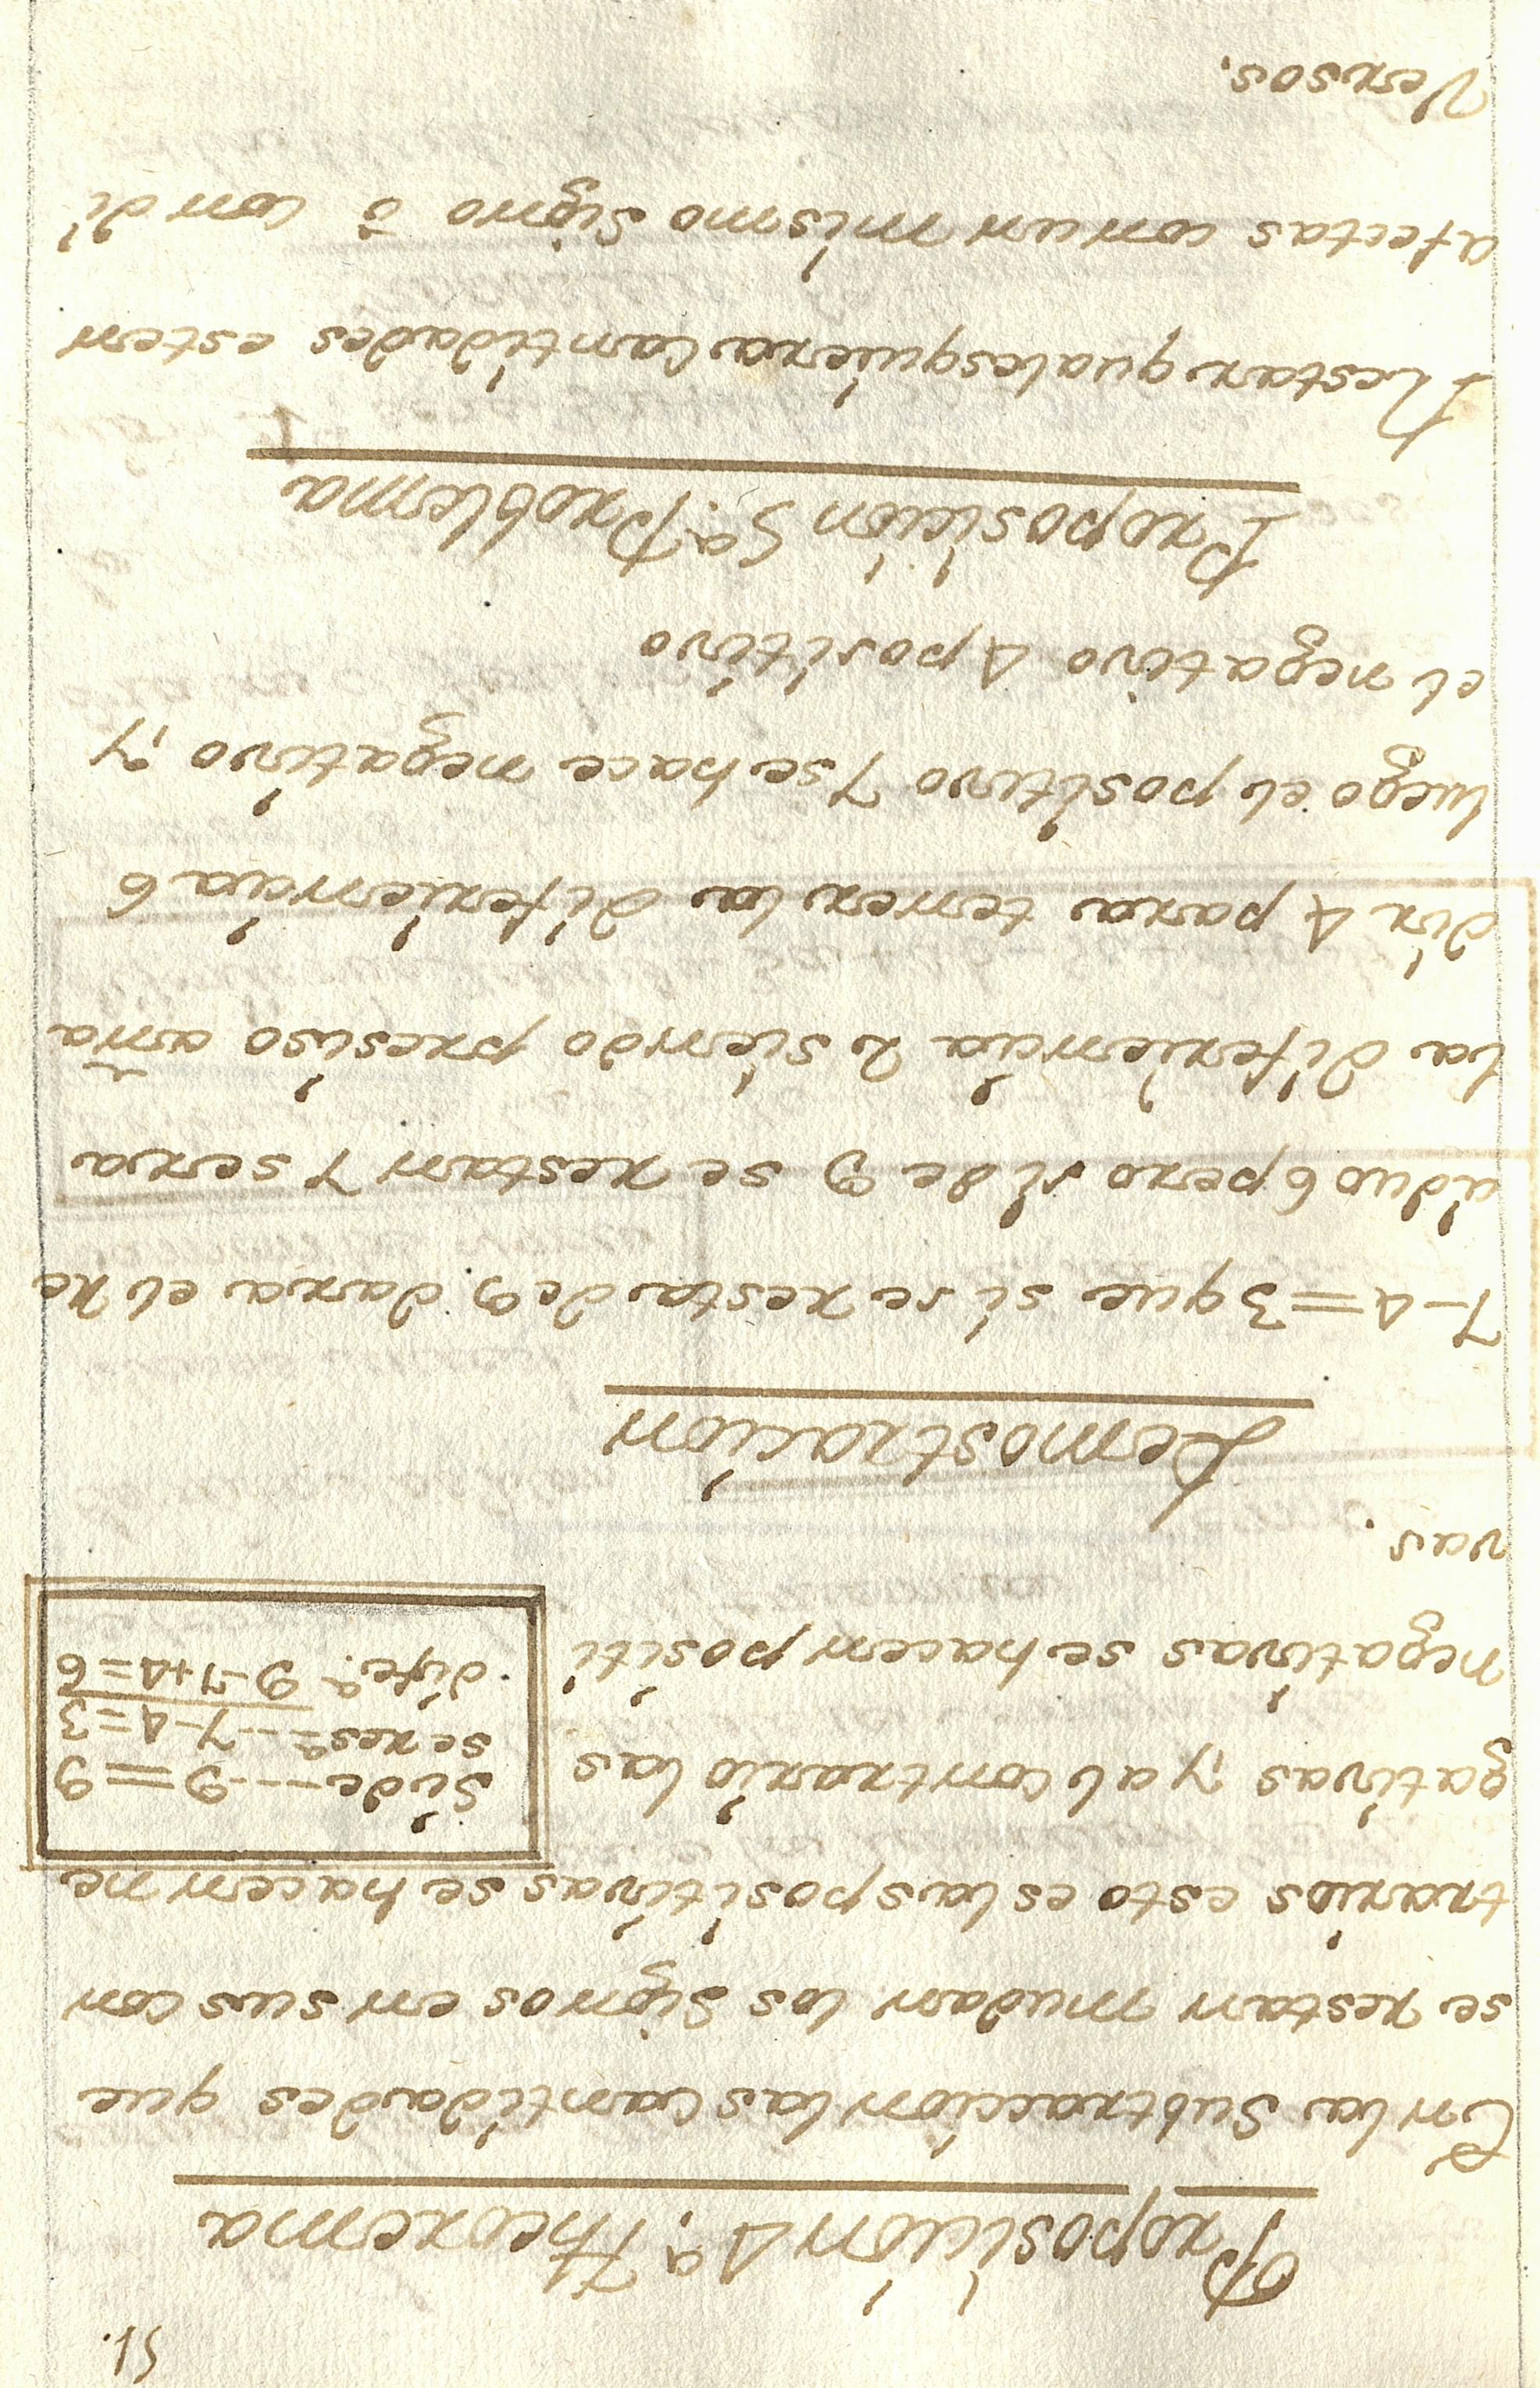 51.
Proposicion 4.ª Theorema
En la Subtraccion las Cantidades que
se restan mudan los Signos en sus con
trarios esto es las positivas se hacen ne
gativas y al contrario las
negativas se hacen positi
vas.
Side ---- 9 = 9
se res.ⁿ --- 7-4=3
dife.ª 9-7+4=6
Demostracion
7-4=3 que si se resta de 9 dara el re
ciduo 6 pero si de 9 se restan 7 sera
la diferiencia 2 siendo presiso aña
dir 4 para tener la diferiencia 6
luego el positivo 7 se hace negativo, y
el negativo 4 positivo
Proposicion 5.ª Problema
Restar qualesquiera Cantidades esten
afectas con un mismo Signo ò con di
Versos.